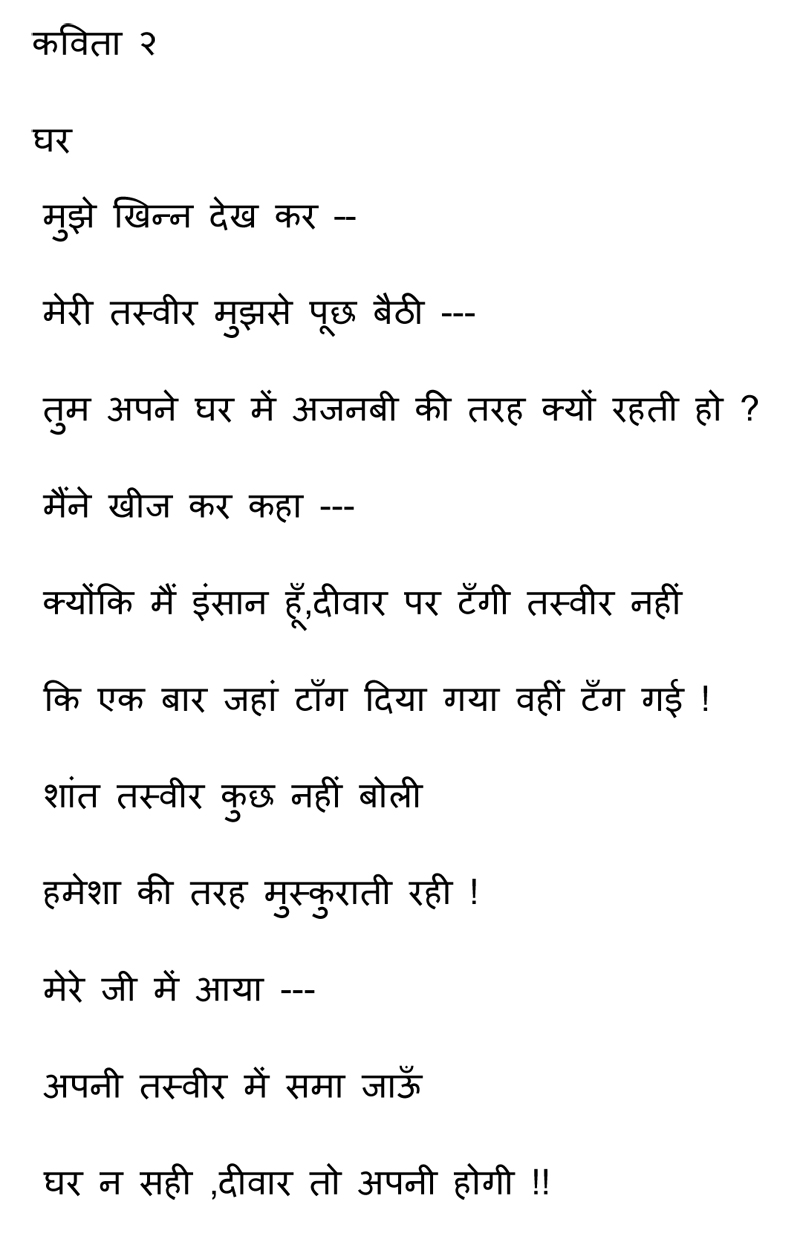 कविता २
घर
मुझे खिन्न देख कर --
मेरी तस्वीर मुझसे पूछ बैठी ---
तुम अपने घर में अजनबी की तरह क्यों रहती हो ?
मैंने खीज कर कहा ---
क्योंकि मैं इंसान हूँ,दीवार पर टँगी तस्वीर नहीं
कि एक बार जहां टाँग दिया गया वहीं टँग गई !
शांत तस्वीर कुछ नहीं बोली
हमेशा की तरह मुस्कुराती रही !
मेरे जी में आया ---
अपनी तस्वीर में समा जाऊँ
घर न सही ,दीवार तो अपनी होगी !!